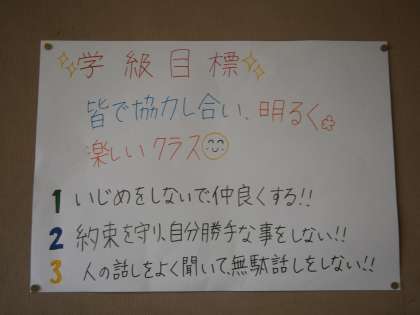 学級目標
皆で協力し合い、明るく
楽しいクラス
1 いじめをしないで、仲良くする!!
2 約束を守り、自分勝手な事をしない!!
3 人の話しをよく聞いて、無駄話しをしない!!